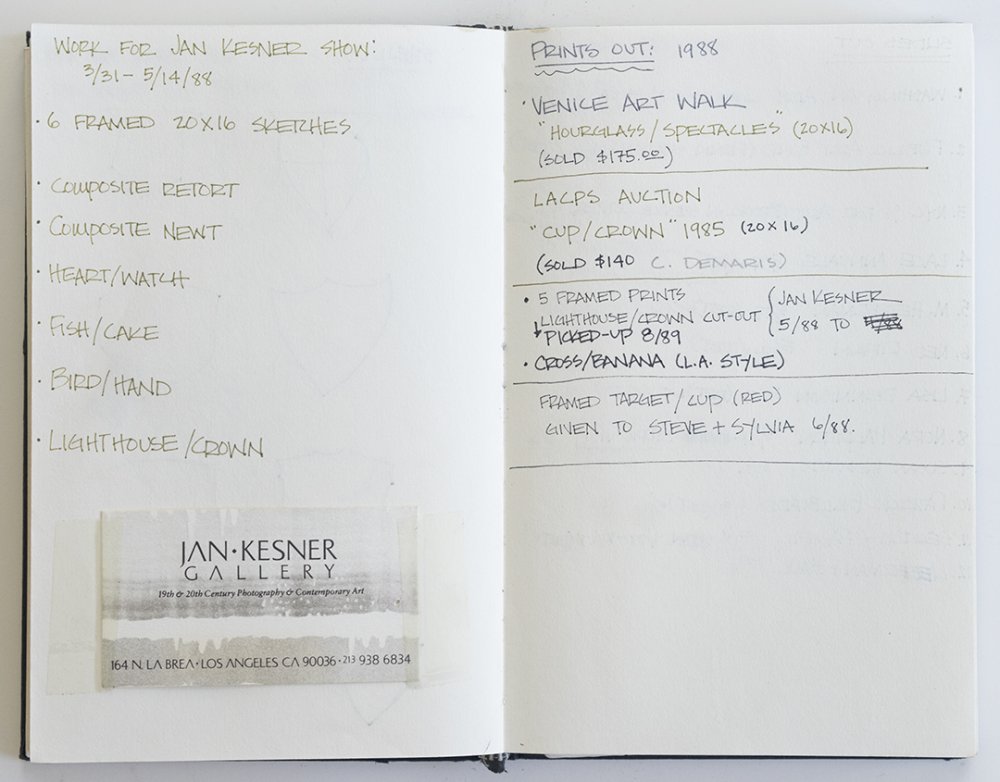 WORK FOR JAN KESNER SHOW:
3/31 - 5/14/88
· 6 FRAMED 20X16 SKETCHES
· COMPOSITE RETORT
· COMPOSITE NEWT
· HEART/WATCH
· FISH/CAKE
· BIRD/HAND
· LIGHTHOUSE/CROWN
JAN·KESNER
GALLERY
19th & 20th Century Photography & Contemporary Art
164 N. LA BREA · LOS ANGELES CA 90036 · 213 938 6834
PRINTS OUT: 1988
· VENICE ART WALK
"HOURGLASS/SPECTACLES" (20X16)
(SOLD $175.00)
LACPS AUCTION
"CUP/CROWN" 1985 (20X16)
(SOLD $140 C. DEMARIS)
· 5 FRAMED PRINTS
LIGHTHOUSE/CROWN CUT-OUT
↓ PICKED-UP 8/89
{ JAN KESNER
5/88 TO
· CROSS/BANANA (L.A. STYLE)
FRAMED TARGET/CUP (RED)
GIVEN TO STEVE + SYLVIA 6/88.